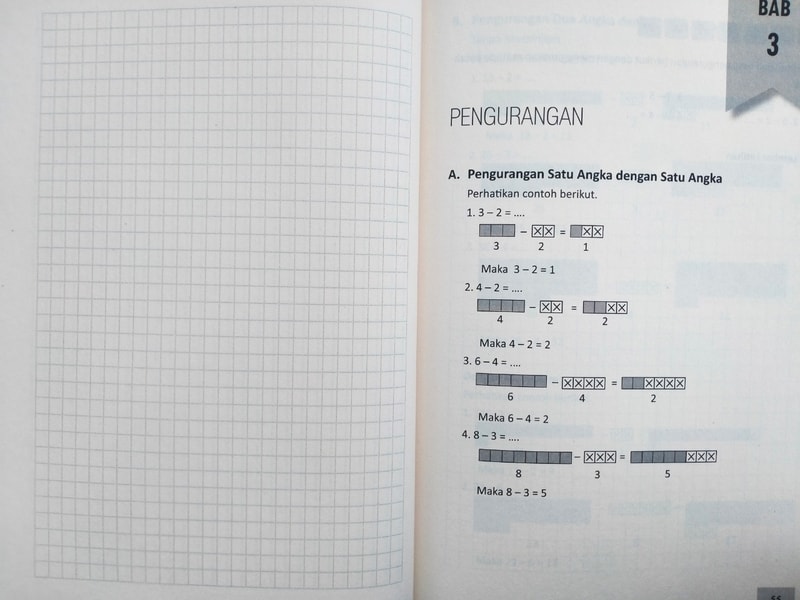 BAB
3
PENGURANGAN
A. Pengurangan Satu Angka dengan Satu Angka
Perhatikan contoh berikut.
1. 3 – 2 = ....
– =
3 2 1
Maka 3 – 2 = 1
2. 4 – 2 = ....
– =
4 2 2
Maka 4 – 2 = 2
3. 6 – 4 = ....
– =
6 4 2
Maka 6 – 4 = 2
4. 8 – 3 = ....
– =
8 3 5
Maka 8 – 3 = 5